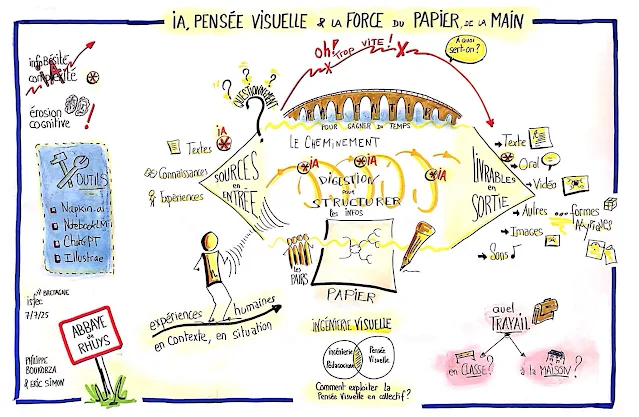 iA, PENSÉE VISUELLE & LA FORCE DU PAPIER, DE LA MAIN
infobésité
complexité
IA
érosion
cognitive
OUTILS
Napkin.ai
NotebookLM
ChatGPT
Illustrae
BRETAGNE
7/7/25
ABBAYE
de
RHUYS
PHILIPPE
BOUKOBZA
& ERIC SIMON
QUESTIONNEMENT
iA
Textes
Connaissances
Expériences
SOURCES
en
ENTRÉE
oh! Trop VITE!
A quoi
sert-on?
POUR GAGNER DU TEMPS
LE CHEMINEMENT
iA
iA
iA
DIGESTION
pour
STRUCTURER
les infos
les
PAIRS
PAPIER
expériences humaines
en contexte, en situation
LIVRABLES
en
SORTIE
Texte
Oral
Vidéo
Autres ... formes
Images
Sons
INGÉNIERIE VISUELLE
ingénierie
Pédagogique
Pensée
Visuelle
Comment exploiter la
Pensée Visuelle en collectif?
quel
TRAVAIL
en CLASSE?
à la MAISON?